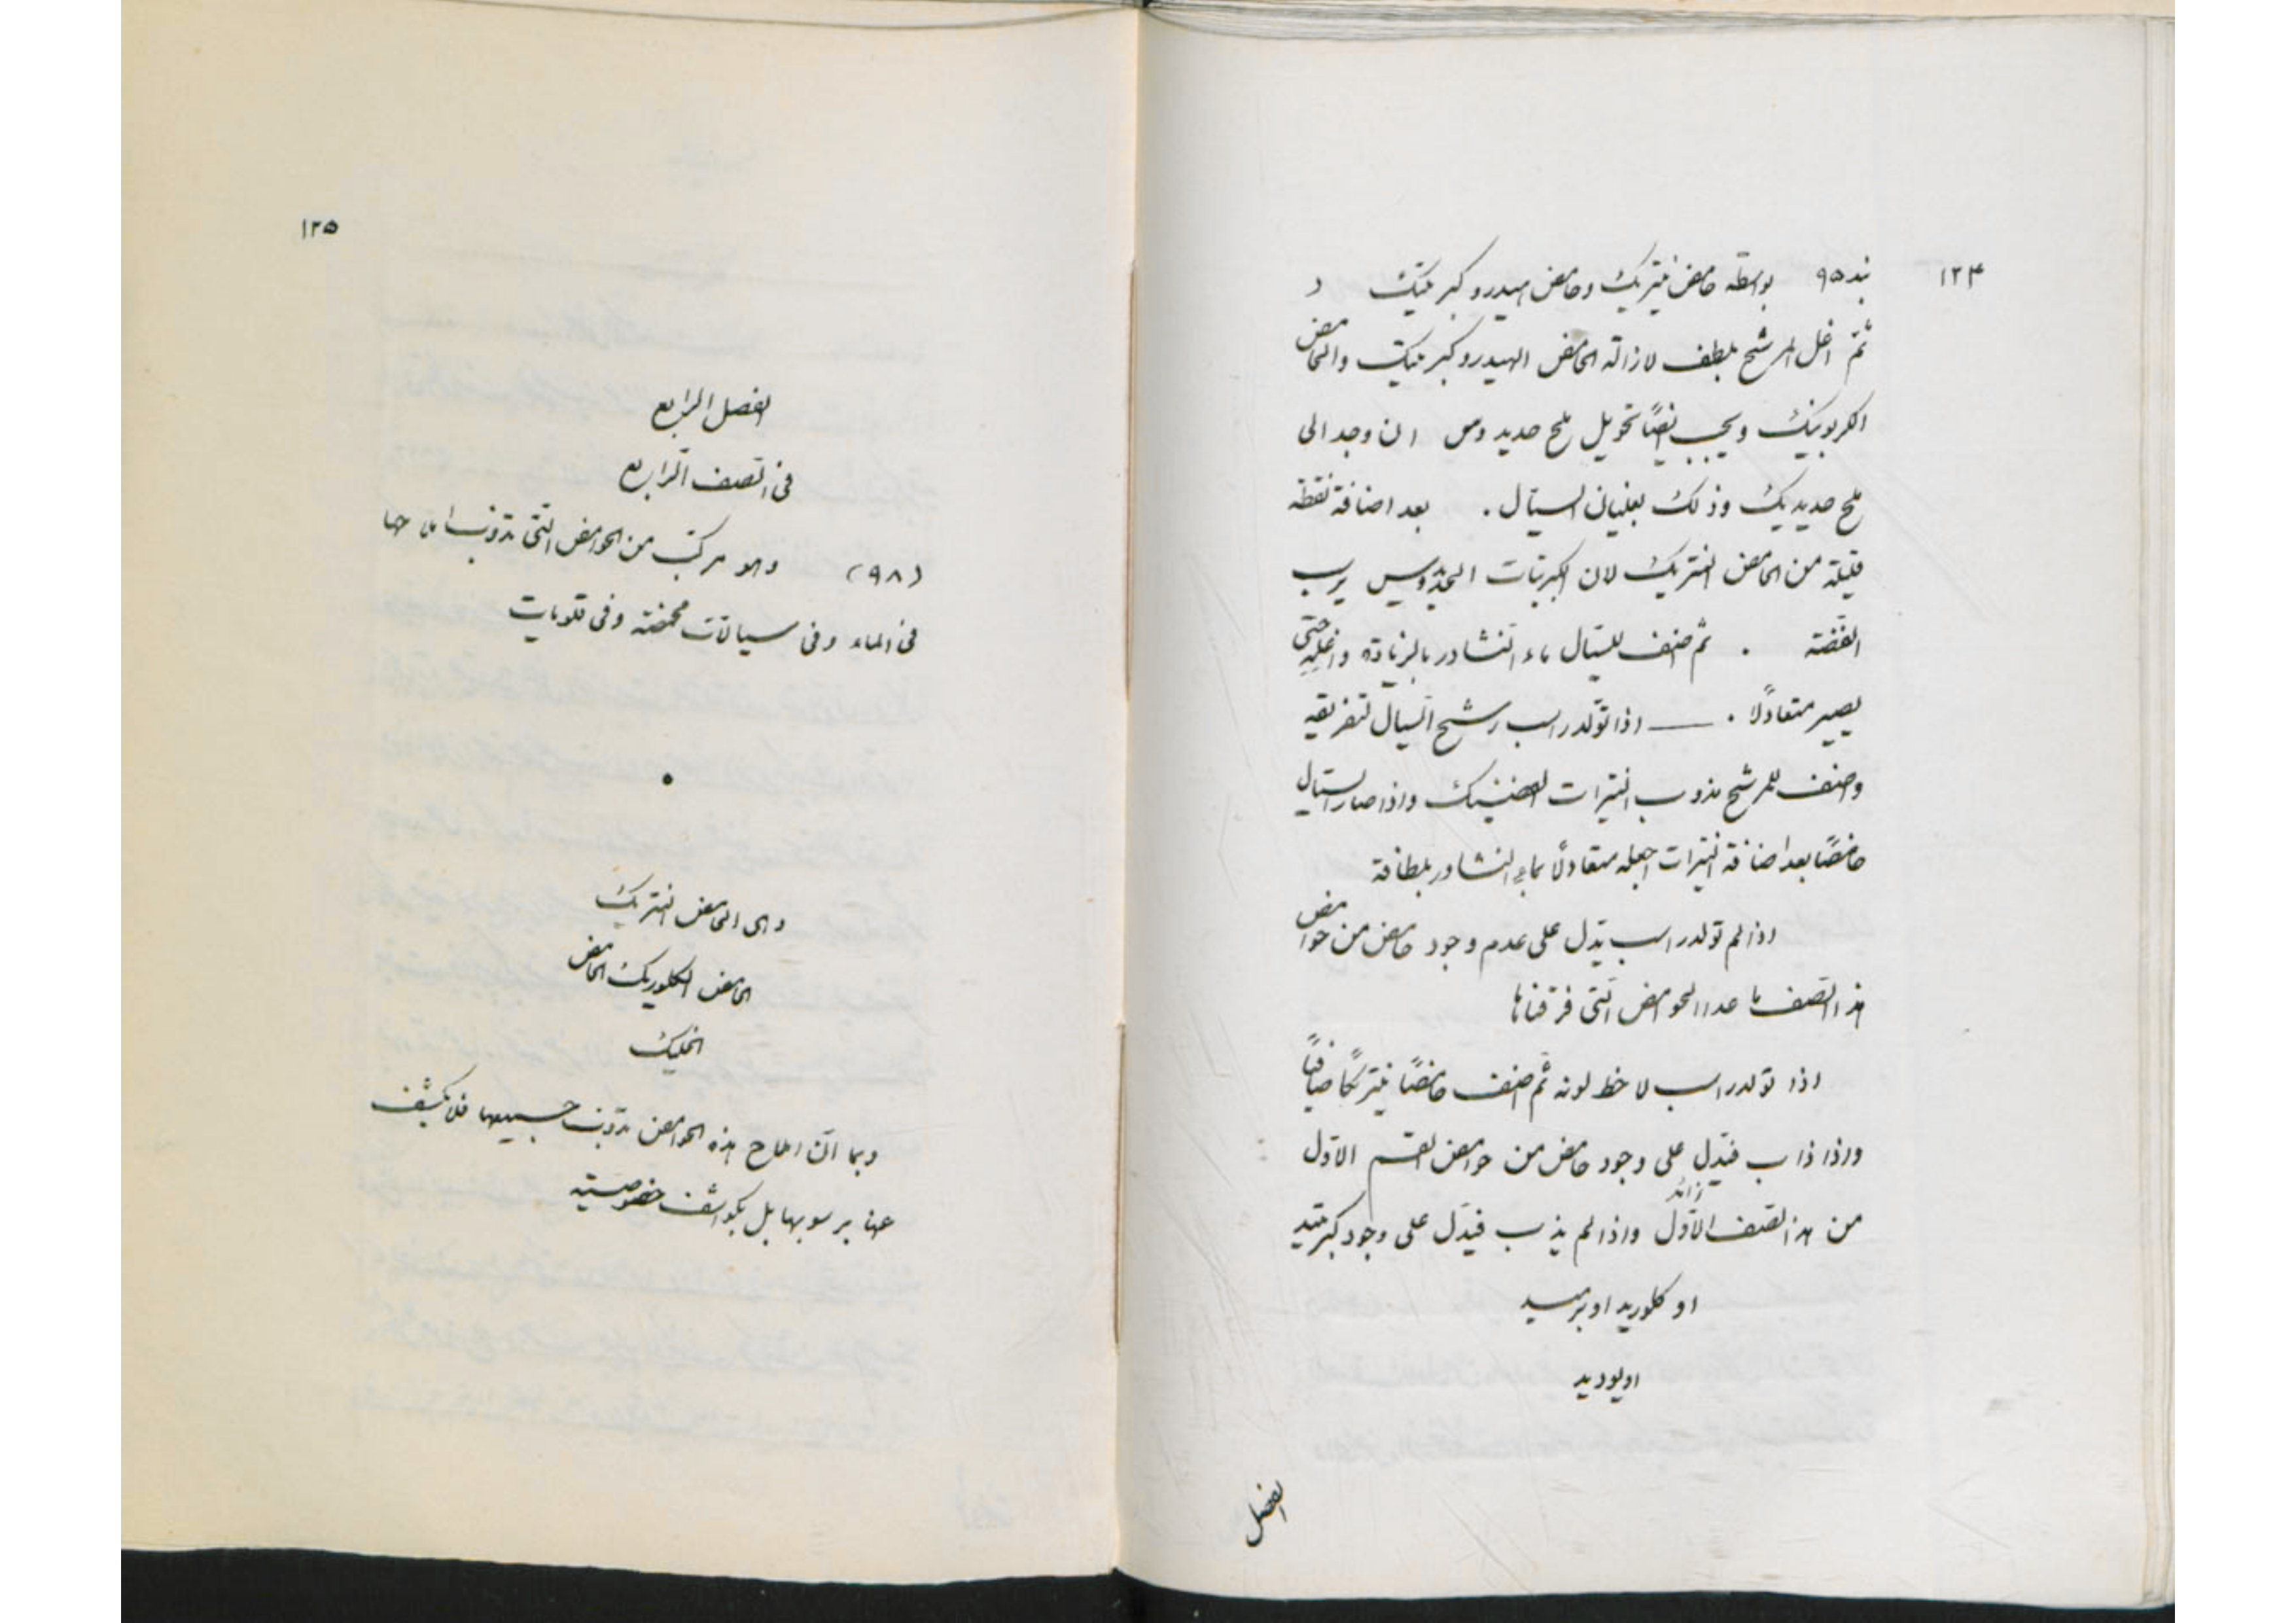 ١٢٤
بند ٩٥ بواسطه حامض نيتريك وحامض هيدروكبريتيك د
ثمّ اغل المرشح بلطف لازالة الحامض الهيدروكبريتيك والحامض
الكربونيك ويجب ايضًا تحويل ملح حديدوس ان وجد الى
ملح حديديك وذلك بغليان السيّال . بعد اضافة نقطة
قليلة من الحامض النتريك لان الكبريتات الحديدوس يرسب
الفضّة . ثم ضف للسيّال ماء النشادر بالزيادة واغليه حتى
يصير متعادلًا . — اذا تولد راسب رشح السيال لتفريقه
وضف للمرشح مذوب النيترات الفضيك واذا صار السيّال
حامضًا بعد اضافة النيترات اجعله متعادلًا بماء النشادر بلطافة
اذا لم تولد راسب يدّل على عدم وجود حامض من حوامض
هذا الصّنف ما عدا الحوامض التّى فرّقناها
اذا تولد راسب لاحظ لونه ثمّ ضف حامضًا نيتريكًا صافيًا
واذا ذاب فيدّل على وجود حامض من حوامض القسم الاوّل
من هذا الصّنف الاوّل زائد واذا لم يذب فيدّل على وجود كبريتيد
او كلوريد او برميد
او يوديد
الفصل
١٢٥
الفصل الرّابع
فى الصّنف الرّابع
(٩٨) وهو مركّب من الحوامض التّى تذوّب املاحها
فى الماء وفى سيالات محمّضة وفى قلويات
•
وهى الحامض النتريك
الحامض الكلوريك الحامض
الخليك
وبما انّ املاح هذه الحوامض تذوّب جميعها فلا يكشف
عنها برسوبها بل بكواشف خصوصيّة